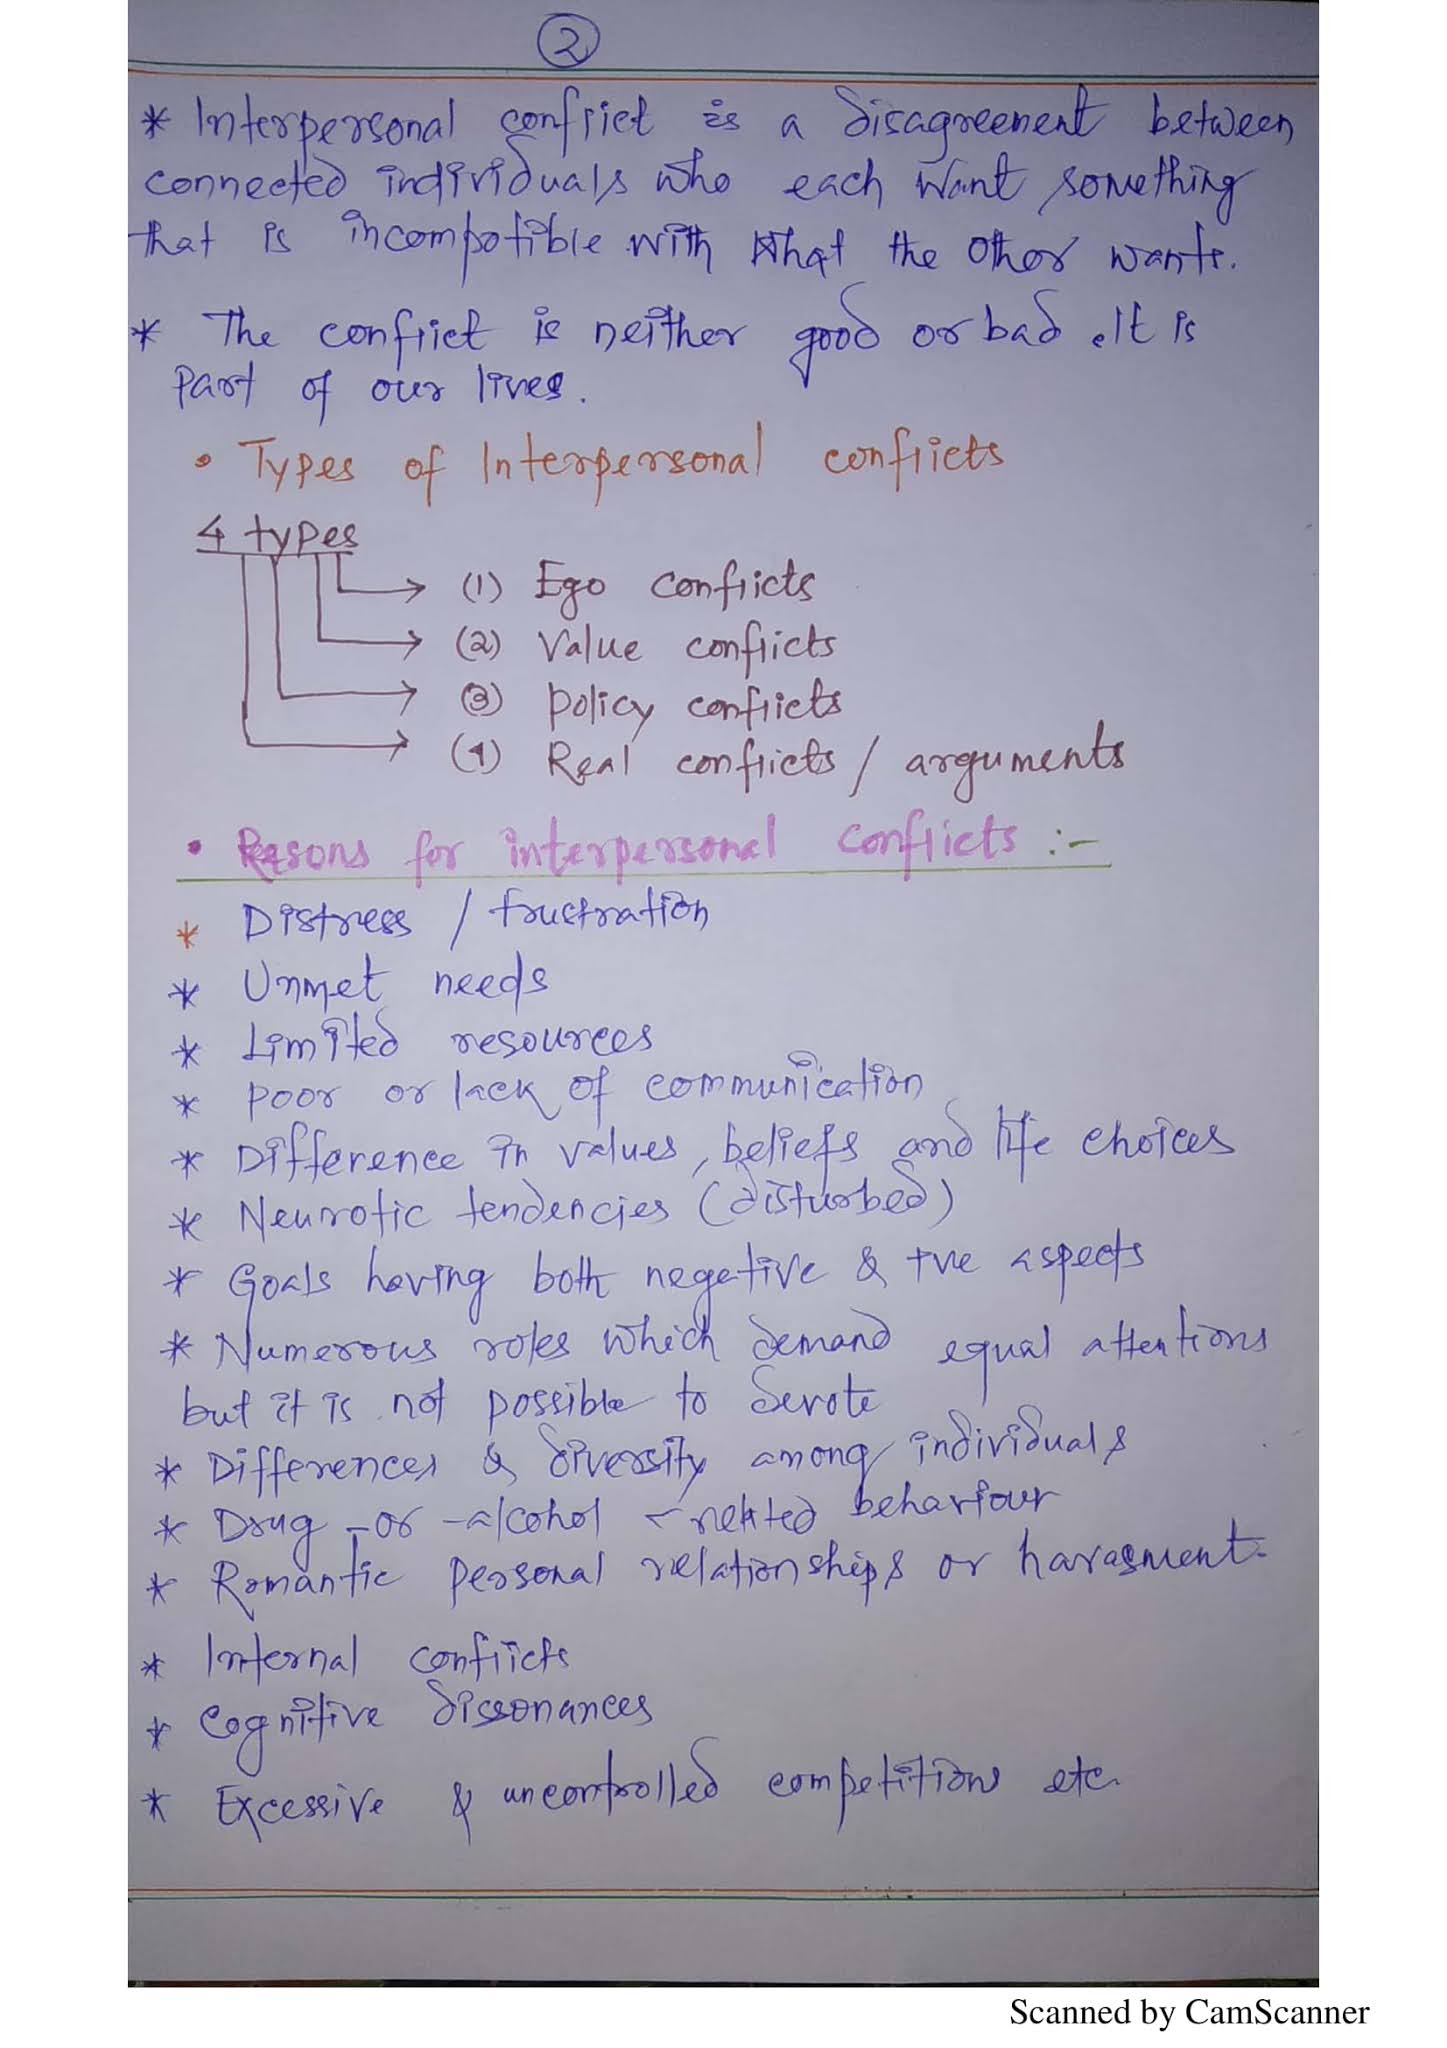 2
* Interpersonal conflict is a disagreement between
connected individuals who each want something
that is incompatible with what the other wants.
* The conflict is neither good or bad. It is
part of our lives.
• Types of Interpersonal conflicts
4 types
(1) Ego conflicts
(2) Value conflicts
(3) policy conflicts
(4) Real conflicts / arguments
• Reasons for interpersonal conflicts :-
* Distress / frustration
* Unmet needs
* Limited resources
* poor or lack of communication
* Difference in values, beliefs and life choices
* Neurotic tendencies (disturbed)
* Goals having both negative & +ve aspects
* Numerous roles which demand equal attentions
but it is not possible to devote
* Differences & diversity among individuals
* Drug -or -alcohol -related behaviour
* Romantic personal relationships or harasment.
* Internal conflicts
* Cognitive dissonances
* Excessive & uncontrolled competitions etc.
Scanned by CamScanner